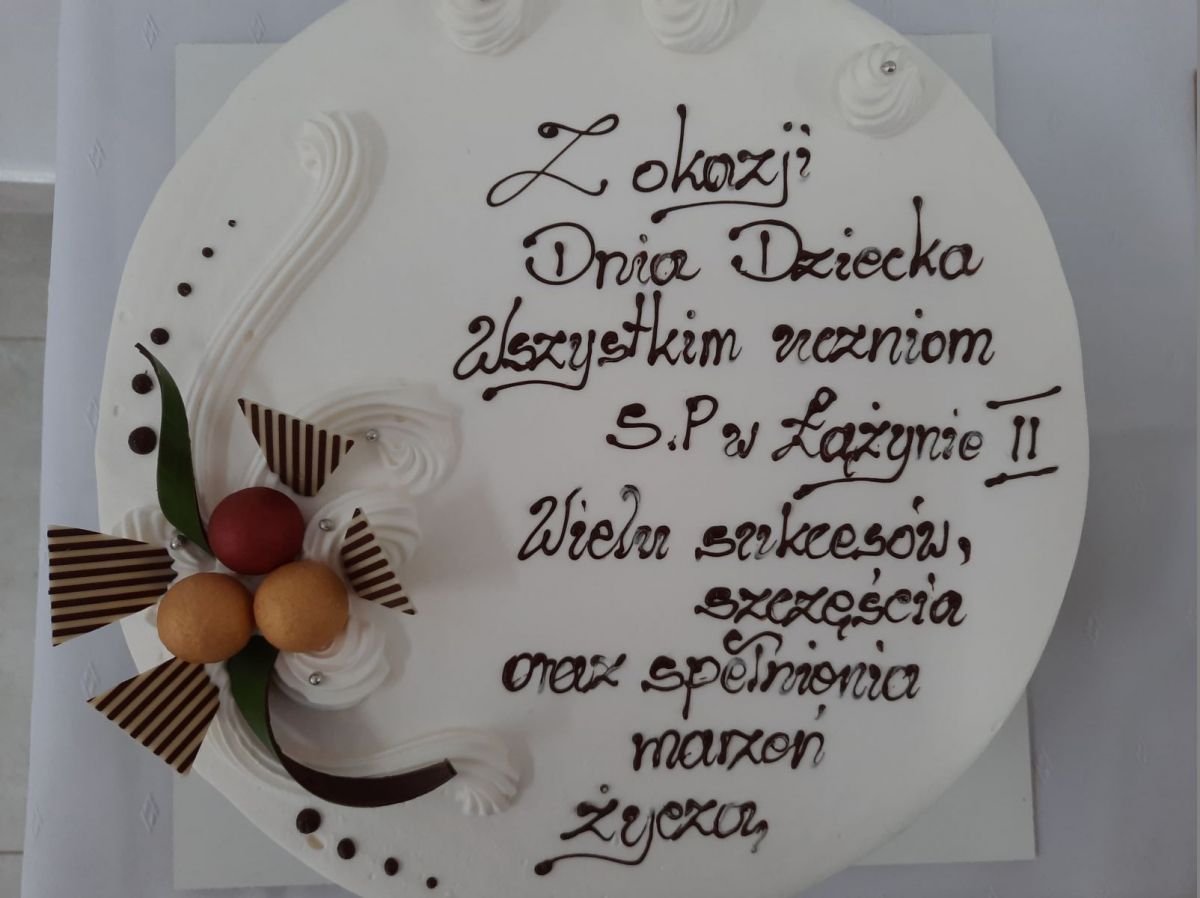 Z okazji
Dnia Dziecka
Wszystkim uczniom
S.P w Łążynie II
Wielu sukcesów,
szczęścia
oraz spełnienia
marzeń
życzą